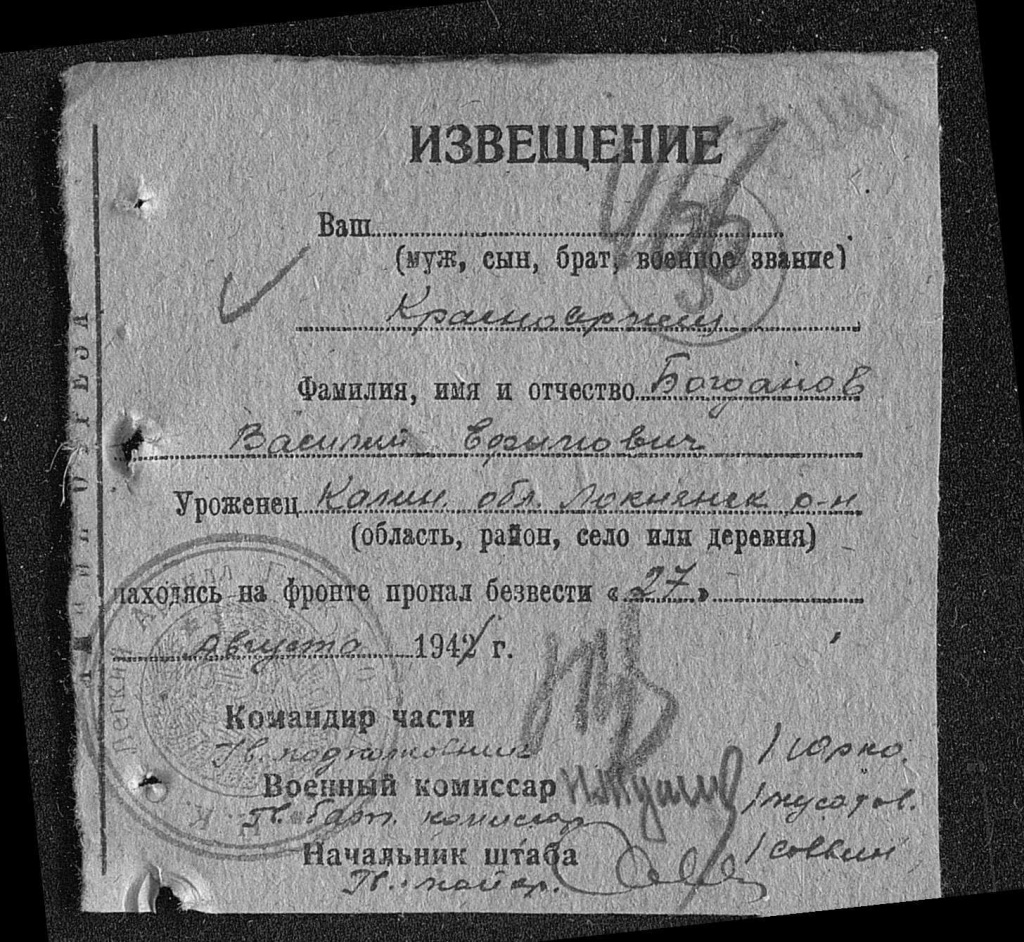 ИЗВЕЩЕНИЕ
Ваш
(муж, сын, брат, военное звание)
Красноармеец
Фамилия, имя и отчество Богданов
Василий Ефимович
Уроженец Калин. обл. Локнянск р-н
(область, район, село или деревня)
находясь на фронте пропал безвести «27»
Августа 1942 г.
Командир части
Гв. подполковник /Юрко.
Военный комиссар /Мусатов.
Гв. бат. комиссар
Начальник штаба /Совкин
Гв. майор.
ЛИНИЯ ОТРЕЗА